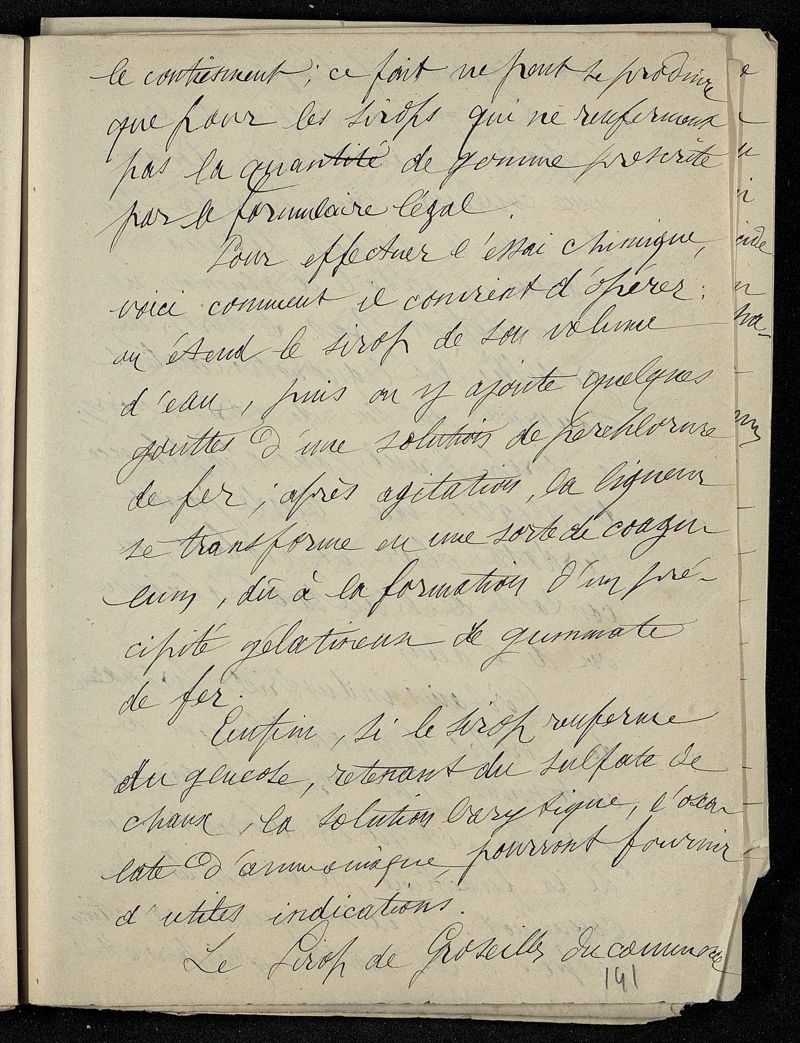 le contiennent; ce fait ne peut se produire
que pour les sirops qui ne renferment
pas la quantité de gomme prescrite
par le formulaire légal.
Pour effectuer l'essai chimique,
voici comment il convient d'opérer:
on étend le sirop de son volume
d'eau, puis on y ajoute quelques
gouttes d'une solution de perchlorure
de fer; après agitation, la liqueur
se transforme en une sorte de coagu
lum, dû à la formation d'un pré-
cipité gélatineux de gummate
de fer.
Enfin, si le sirop renferme
du glucose, retenant du sulfate de
chaux, la solution barytique, l'oxa-
late d'ammoniaque, pourront fournir
d'utiles indications.
Le Sirop de Groseilles du commerce
191